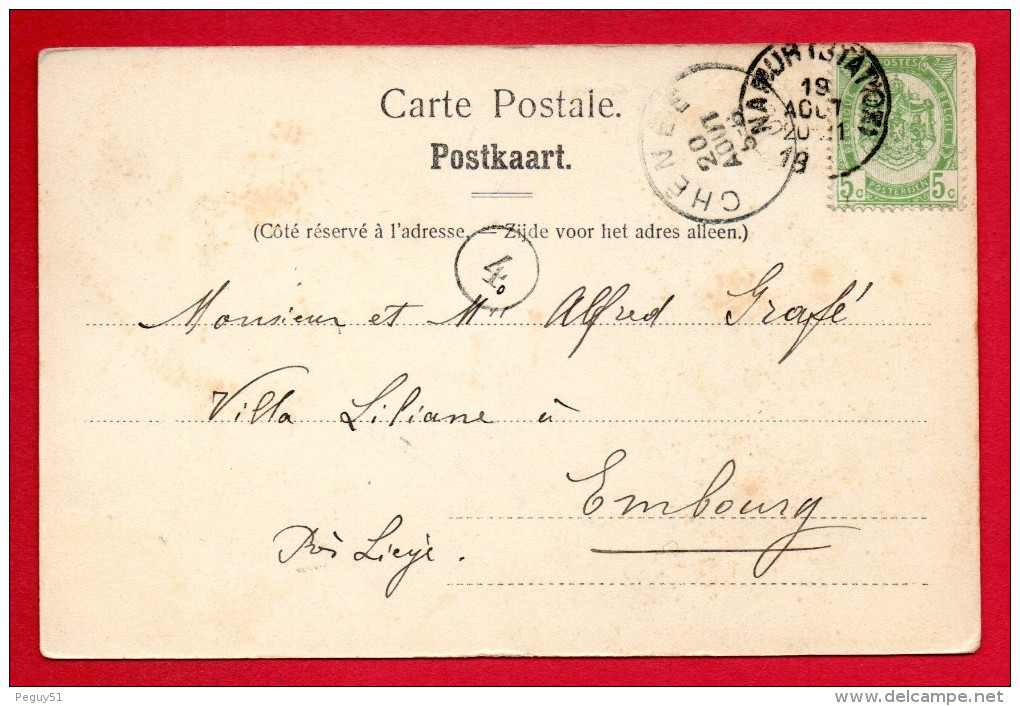 Carte Postale.
Postkaart.
(Côté réservé à l'adresse. — Zijde voor het adres alleen.)
NAMUR (STATION)
19
AOUT
20-21
CHENEE
20
AOUT
POSTES
BELGIE
5c POSTERIJEN 5c
4
Monsieur et Mme Alfred Grafé
Villa Liliane à
Embourg
Près Liége.
Peguy51
www.delcampe.net